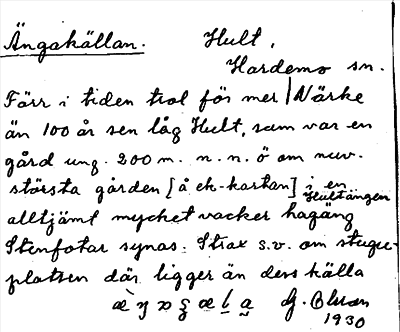 Ängakällan. Hult,
Hardemo sn.
Förr i tiden trol för mer | Närke
än 100 år sen låg Hult, som var en
gård ung. 200 m. n. n. ö om nuv.
största gården [å ek-kartan] i en
Hultängen
alltjämt mycket vacker hagäng
Stenfotar synas. Strax s.v. om stugu-
platsen där ligger än dess källa
G. Olson
1930